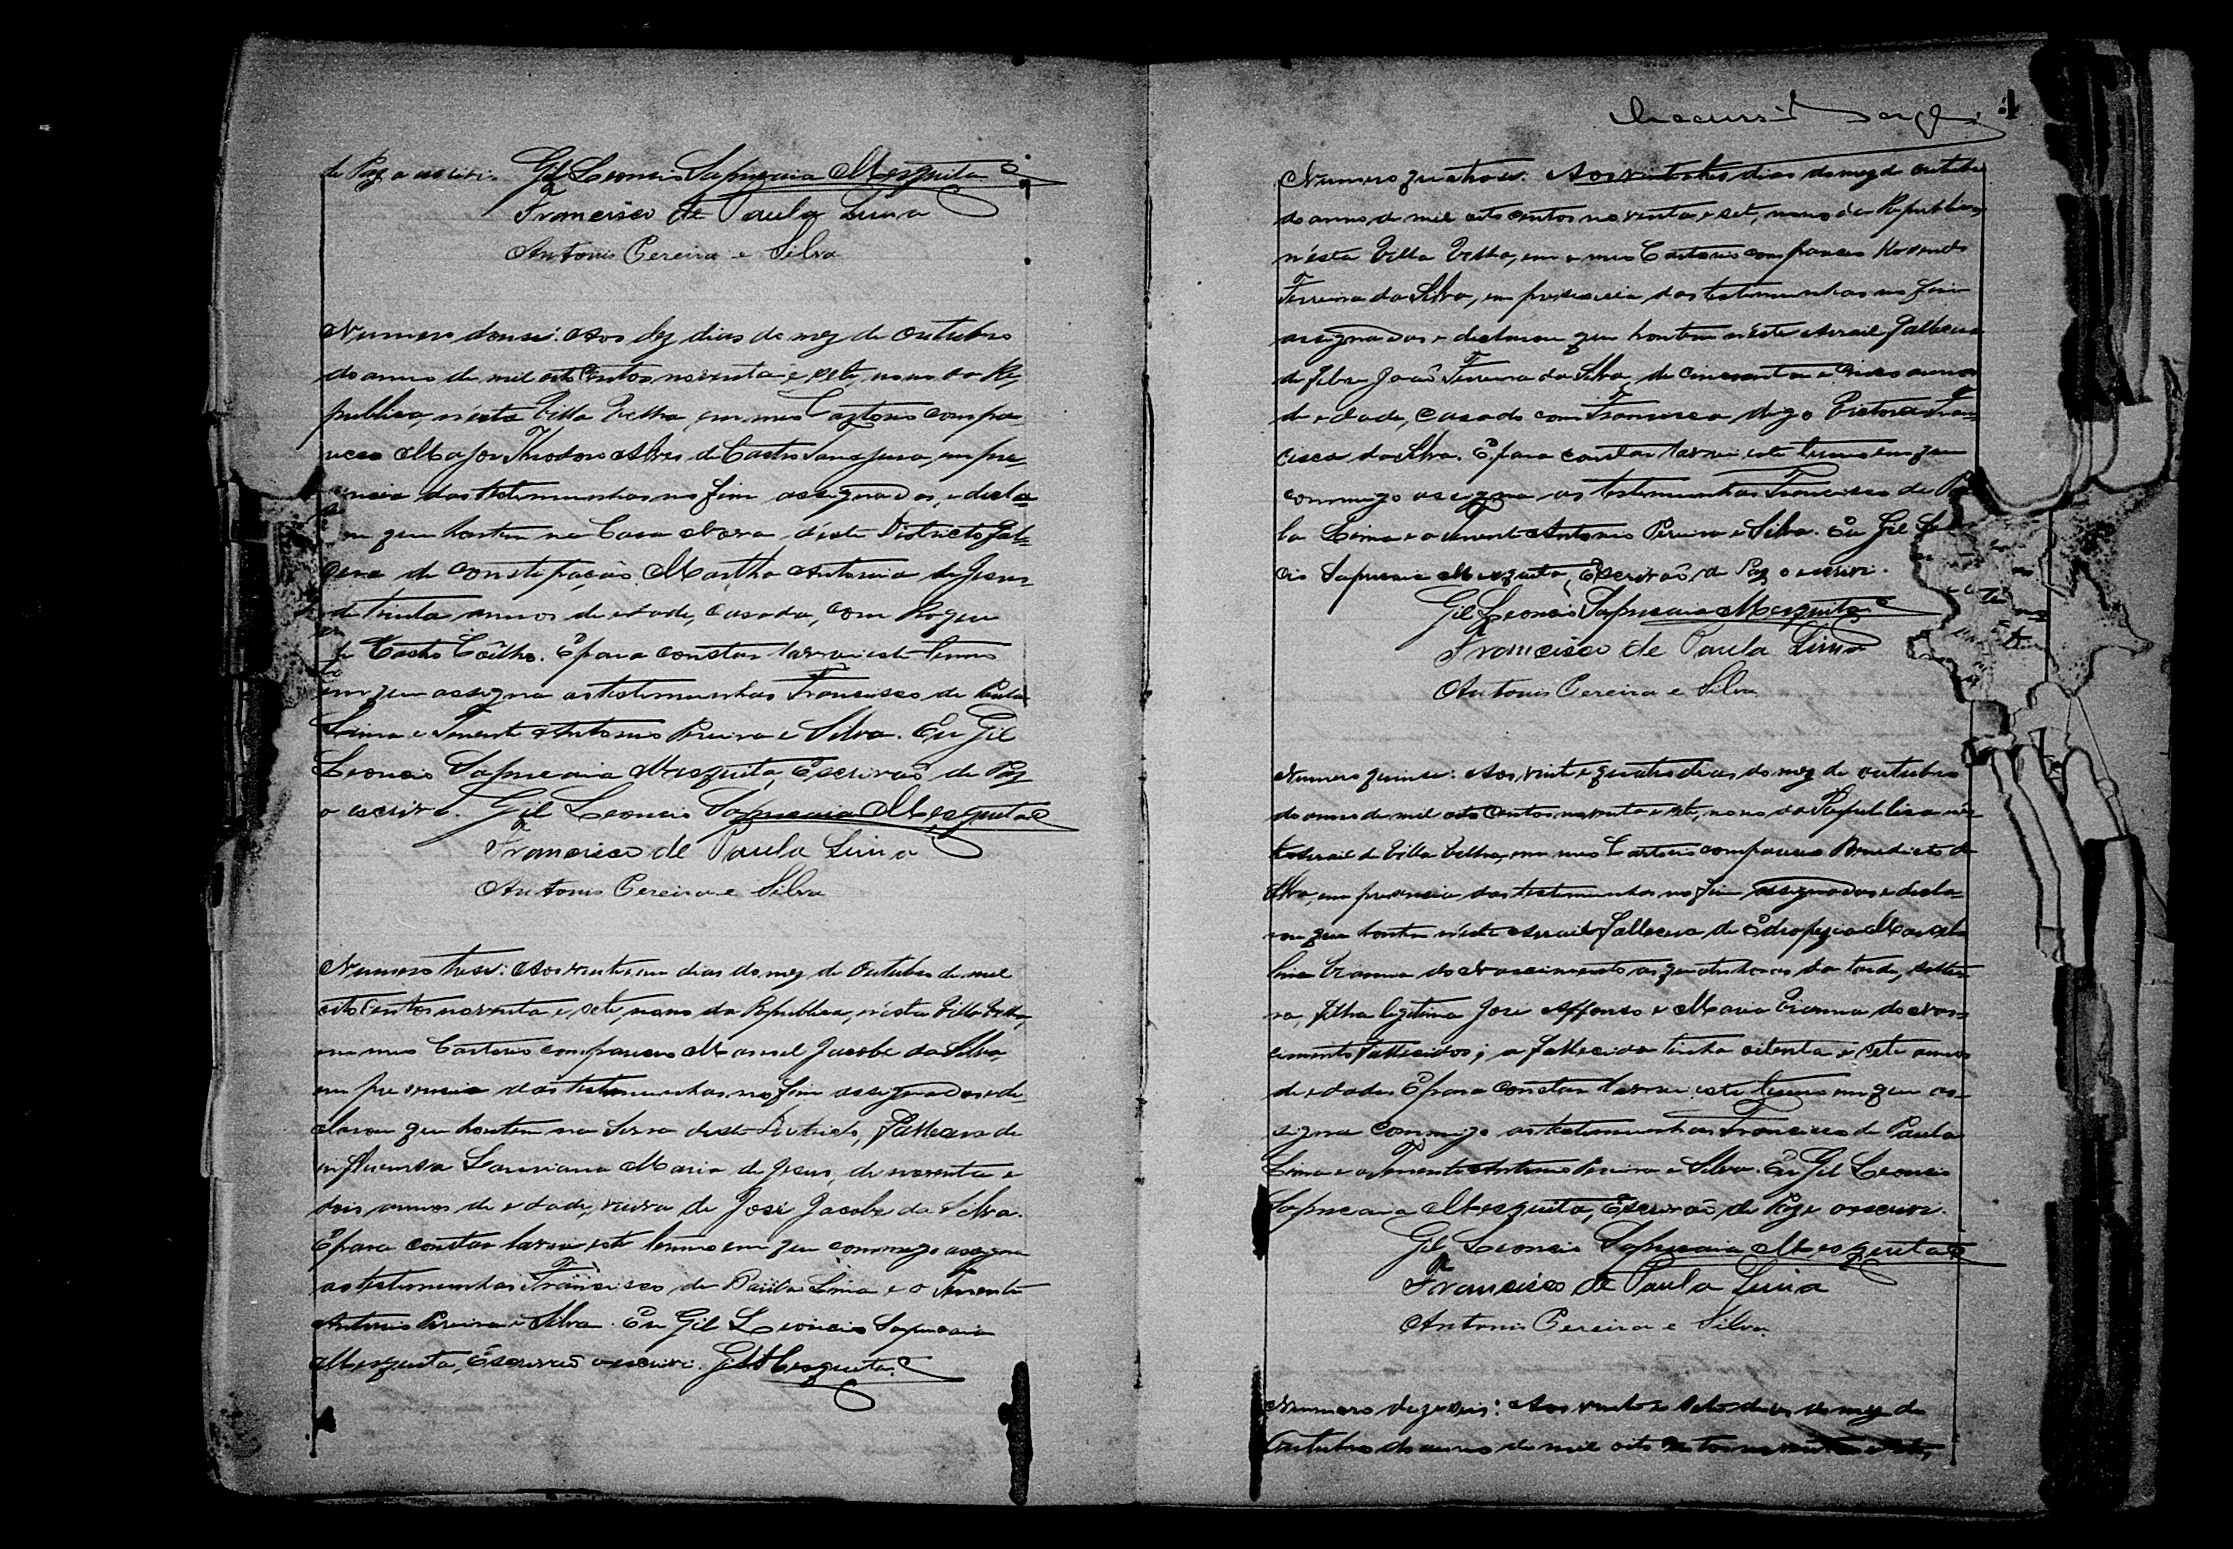 de Paz o escrivi. Gil Leoncio Sapucaia Mesquita
Francisco de Paula Lima
Antonio Pereira e Silva
Numero douse: Aos dez dias do mez de Outubro
do anno de mil oito centos noventa e sete, nono da Re
publica, nesta Villa Velha, em meu Cartorio compa-
receo Major Theodoro Alves de Castro Tanajura, em pre-
sencia das testemunhas no fim assignados, e decla
rou que hontem na Casa Nova, d'este Districto fal-
lecera de constipação Martha Antonia de Jesus
de trinta annos de edade, casada, com Roque
de Castro Coêlho. E para constar lavrei este termo
em que assigna as testemunhas Francisco de Paula
Lima e Tenente Antonio Pereira e Silva. Eu Gil
Leoncio Sapucaia Mesquita, Escrivaõ de Paz
o escrivi. Gil Leoncio Sapucaia Mesquita
Francisco de Paula Lima
Antonio Pereira e Silva
Numero trese: Aos vinte e um dias do mez de Outubro de mil
oito centos noventa e sete, nono da Republica, n'esta Villa Velha,
em meu Cartorio compareceo Manoel Jacobe da Silva
em presencia das testemunhas no fim assignados e de-
clarou que hontem na Serra deste Districto, fallecera de
influensa Maria de Jesus, de noventa e
dois annos de edade, viuva de José Jacobe da Silva.
E para constar lavrei este termo em que commigo assigna
as testemunhas Francisco de Paula Lima e o Tenente
Antonio Pereira e Silva. Eu Gil Leoncio Sapucaia
Mesquita, Escrivaõ o escrivi. Gil Mesquita
4
Numero quatorse: Aos vinte tres dias do mez de Outubro
do anno de mil oito centos noventa e sete, nono da Republica,
n'esta Villa Velha, em o meu Cartorio compareceo Rosendo
Ferreira da Silva, em presencia das testemunhas no fim
assignados e declarou que hontem n'este Arraial falleceu
de febre João Ferreira da Silva, de cincoenta e cinco annos
de edade, casado com Francisca digo Victoria Fran-
cisca da Silva. E para constar lavrei este termo em que
commigo assigna as testemunhas Francisco de Pau
la Lima e o Tenente Antonio Pereira e Silva. Eu Gil Leon
cio Sapucaia Mesquita, Escrivaõ de Paz o escrivi.
Gil Leoncio Sapucaia Mesquita
Francisco de Paula Lima
Antonio Pereira e Silva
Numero quinse: Aos vinte e quatro dias do mez de outubro
do anno de mil oito centos noventa e sete, nono da Republica nes-
te Arraial de Villa Velha, em meu Cartorio compareceo Benedicto da
Silva, em presencia das testemunhas no fim assignados e decla-
rou que hontem n'este Arraial fallecera de Edropezia
Vianna do Nascimento as quatro horas da tarde, soltei-
ra, filha legitima José Affonso e Maria Vianna do Nas-
cimento fallecidos; a fallecida tinha oitenta e sete annos
de edade. E para constar lavrei este termo em que as-
signa commigo as testemunhas Francisco de Paula
Lima e o Tenente Antonio Pereira e Silva. Eu Gil Leoncio
Sapucaia Mesquita, Escrivaõ de Paz o escrivi.
Gil Leoncio Sapucaia Mesquita
Francisco de Paula Lima
Antonio Pereira e Silva
Numero dezeseis: Aos vinte e sete dias do mez de
Outubro do anno de mil oito centos noventa e sete,